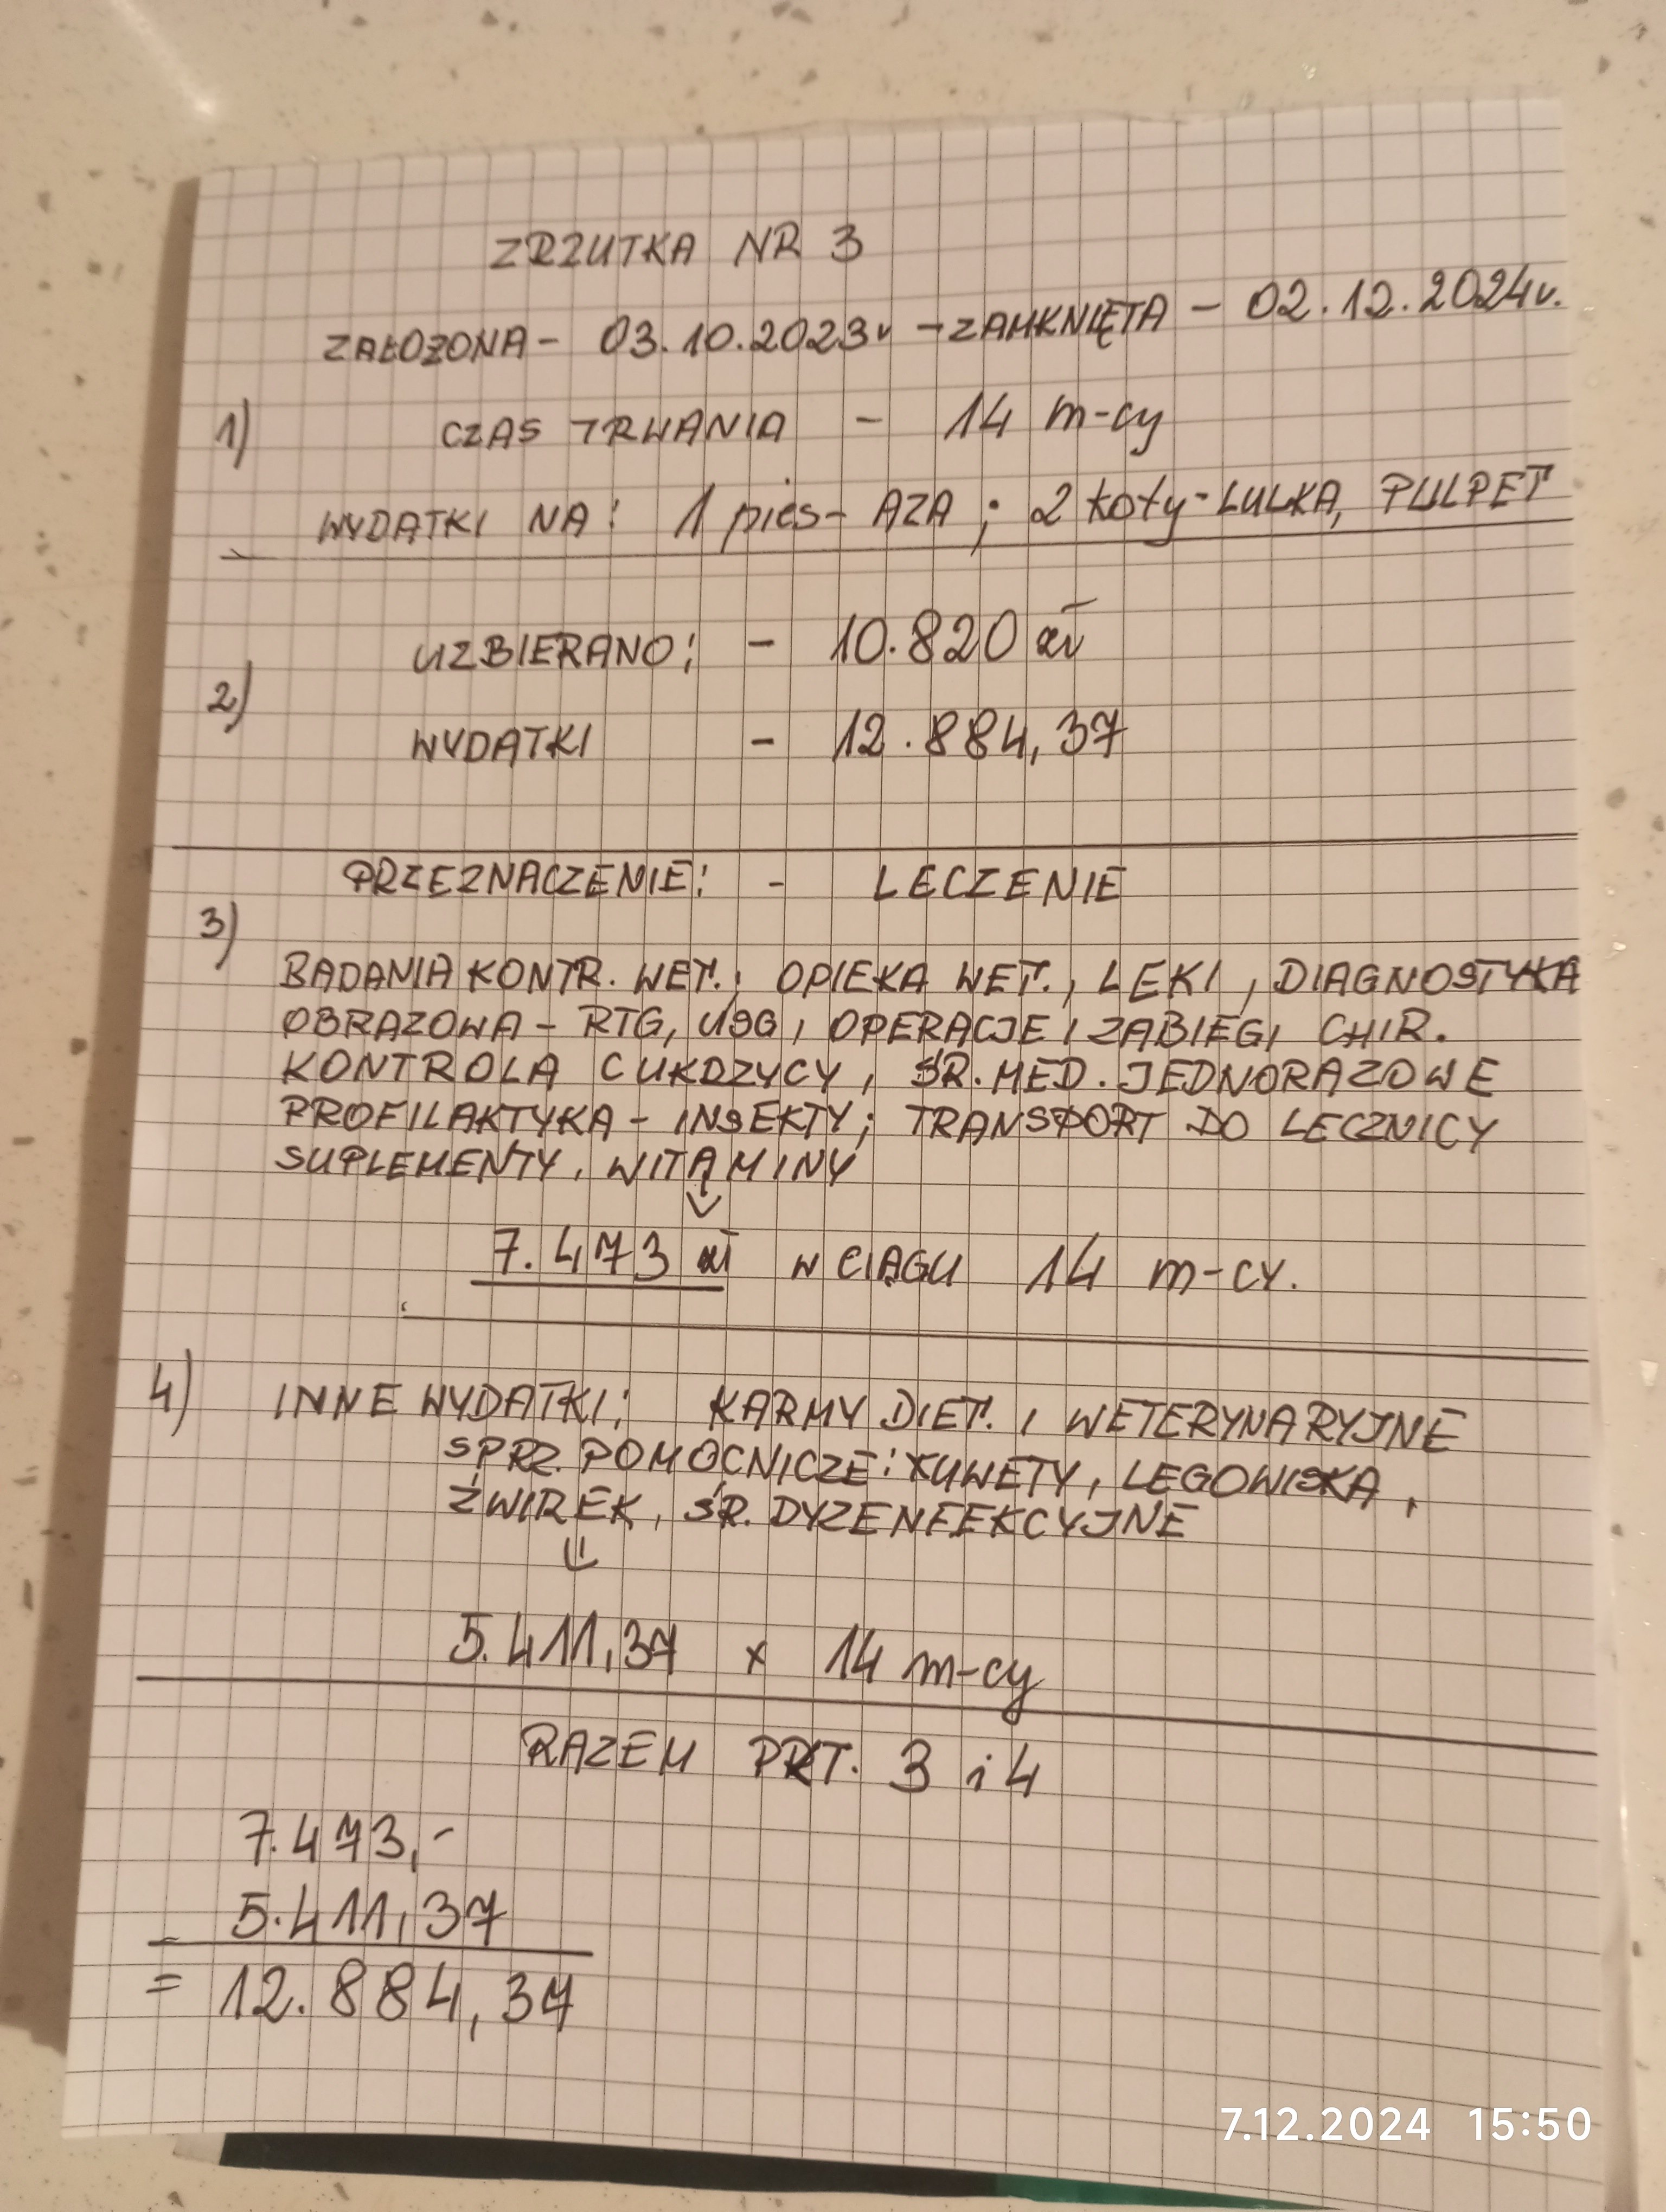 ZRZUTKA NR 3
ZAŁOŻONA - 03.10.2023r - ZAMKNIĘTA - 02.12.2024r.
1) CZAS TRWANIA - 14 m-cy
WYDATKI NA: 1 pies - AZA; 2 koty - LULKA, PULPET
UZBIERANO: - 10.820 zł
2)
WYDATKI - 12.884,37
PRZEZNACZENIE: - LECZENIE
3)
BADANIA KONTR. WET.; OPIEKA WET., LEKI, DIAGNOSTYKA
OBRAZOWA - RTG, USG, OPERACJE I ZABIEGI CHIR.
KONTROLA CUKRZYCY, ŚR. MED. JEDNORAZOWE
PROFILAKTYKA - INSEKTY; TRANSPORT DO LECZNICY
SUPLEMENTY, WITAMINY
7.473 zł W CIĄGU 14 m-CY.
4) INNE WYDATKI: KARMY DIET. I WETERYNARYJNE
SPRZ. POMOCNICZE: KUWETY, LEGOWISKA,
ŻWIREK, ŚR. DYZENFEKCYJNE
5.411,37 x 14 m-cy
RAZEM PKT. 3 i 4
7.473,-
5.411,37
= 12.884,37
7.12.2024 15:50